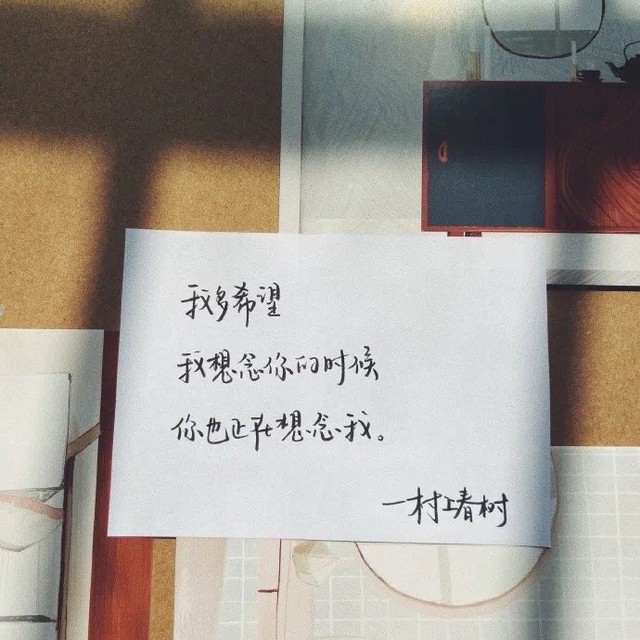 我多希望
我想念你的时候
你也正在想念我。
一村上春树